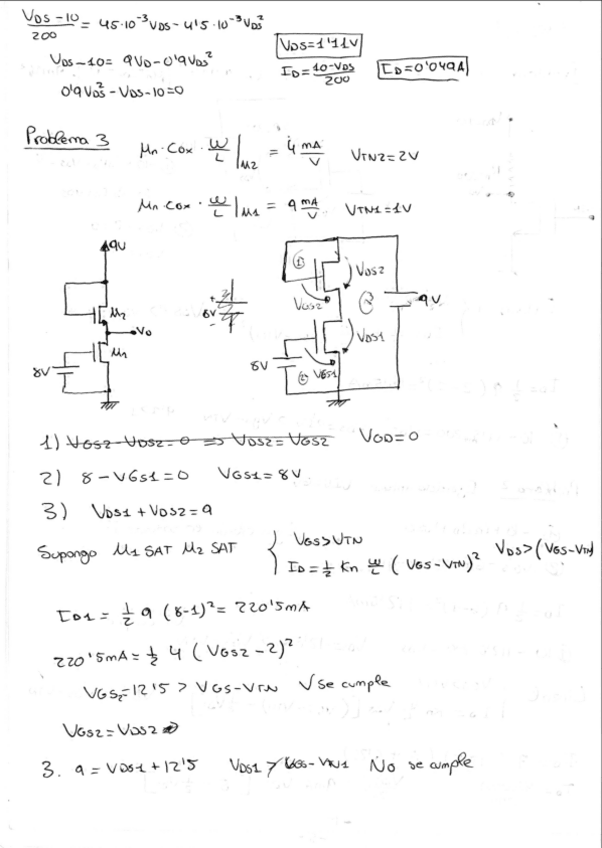 (VDS-10)/200 = 45·10^-3 VDS - 4'5·10^-3 VDS^2
VDS-10 = 9VD-0'9VDS^2
VDS=1'11V
0'9VDS^2-VDS-10=0
ID=(10-VDS)/200
ID=0'049A
Problema 3
μn·Cox·W/L|M2 = 4 mA/V VTN2=2V
μn·Cox·W/L|M1 = 9 mA/V VTN1=1V
9V
M2
Vo
M1
8V
+
8V
-
1
VDS2
VGS2
3
9V
VDS1
8V
2
VGS1
1) VGS2-VDS2=0 => VDS2=VGS2 VGD=0
2) 8-VGS1=0 VGS1=8V
3) VDS1+VDS2=9
Supongo M1 SAT M2 SAT
VGS>VTN
ID=1/2 Kn W/L (VGS-VTN)^2 VDS>(VGS-VTN)
ID1 = 1/2 9 (8-1)^2 = 220'5mA
220'5mA = 1/2 4 (VGS2-2)^2
VGS2=12'5 > VGS-VTN √ Se cumple
VGS2=VDS2
3. 9=VDS1+12'5 VDS1 > VGS-VTN1 No se cumple